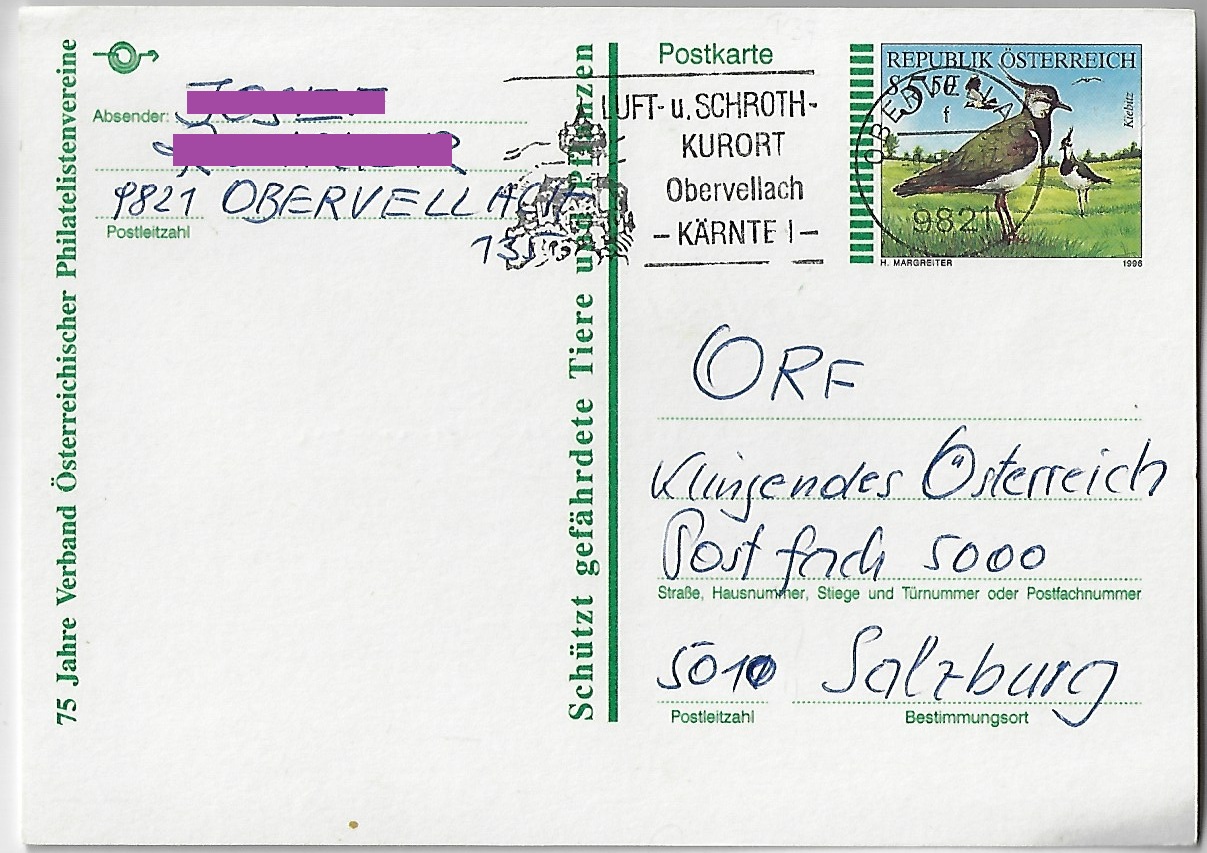 75 Jahre Verband Österreichischer Philatelistenvereine
Absender:
9821 OBERVELLACH
Postleitzahl
135
Schützt gefährdete Tiere und Pflanzen
Postkarte
LUFT- u. SCHROTH-
KURORT
Obervellach
- KÄRNTE I -
REPUBLIK ÖSTERREICH
Kiebitz
f
9821
H. MARGREITER
1996
ORF
Klingendes Österreich
Postfach 5000
Straße, Hausnummer, Stiege und Türnummer oder Postfachnummer
5010 Salzburg
Postleitzahl
Bestimmungsort